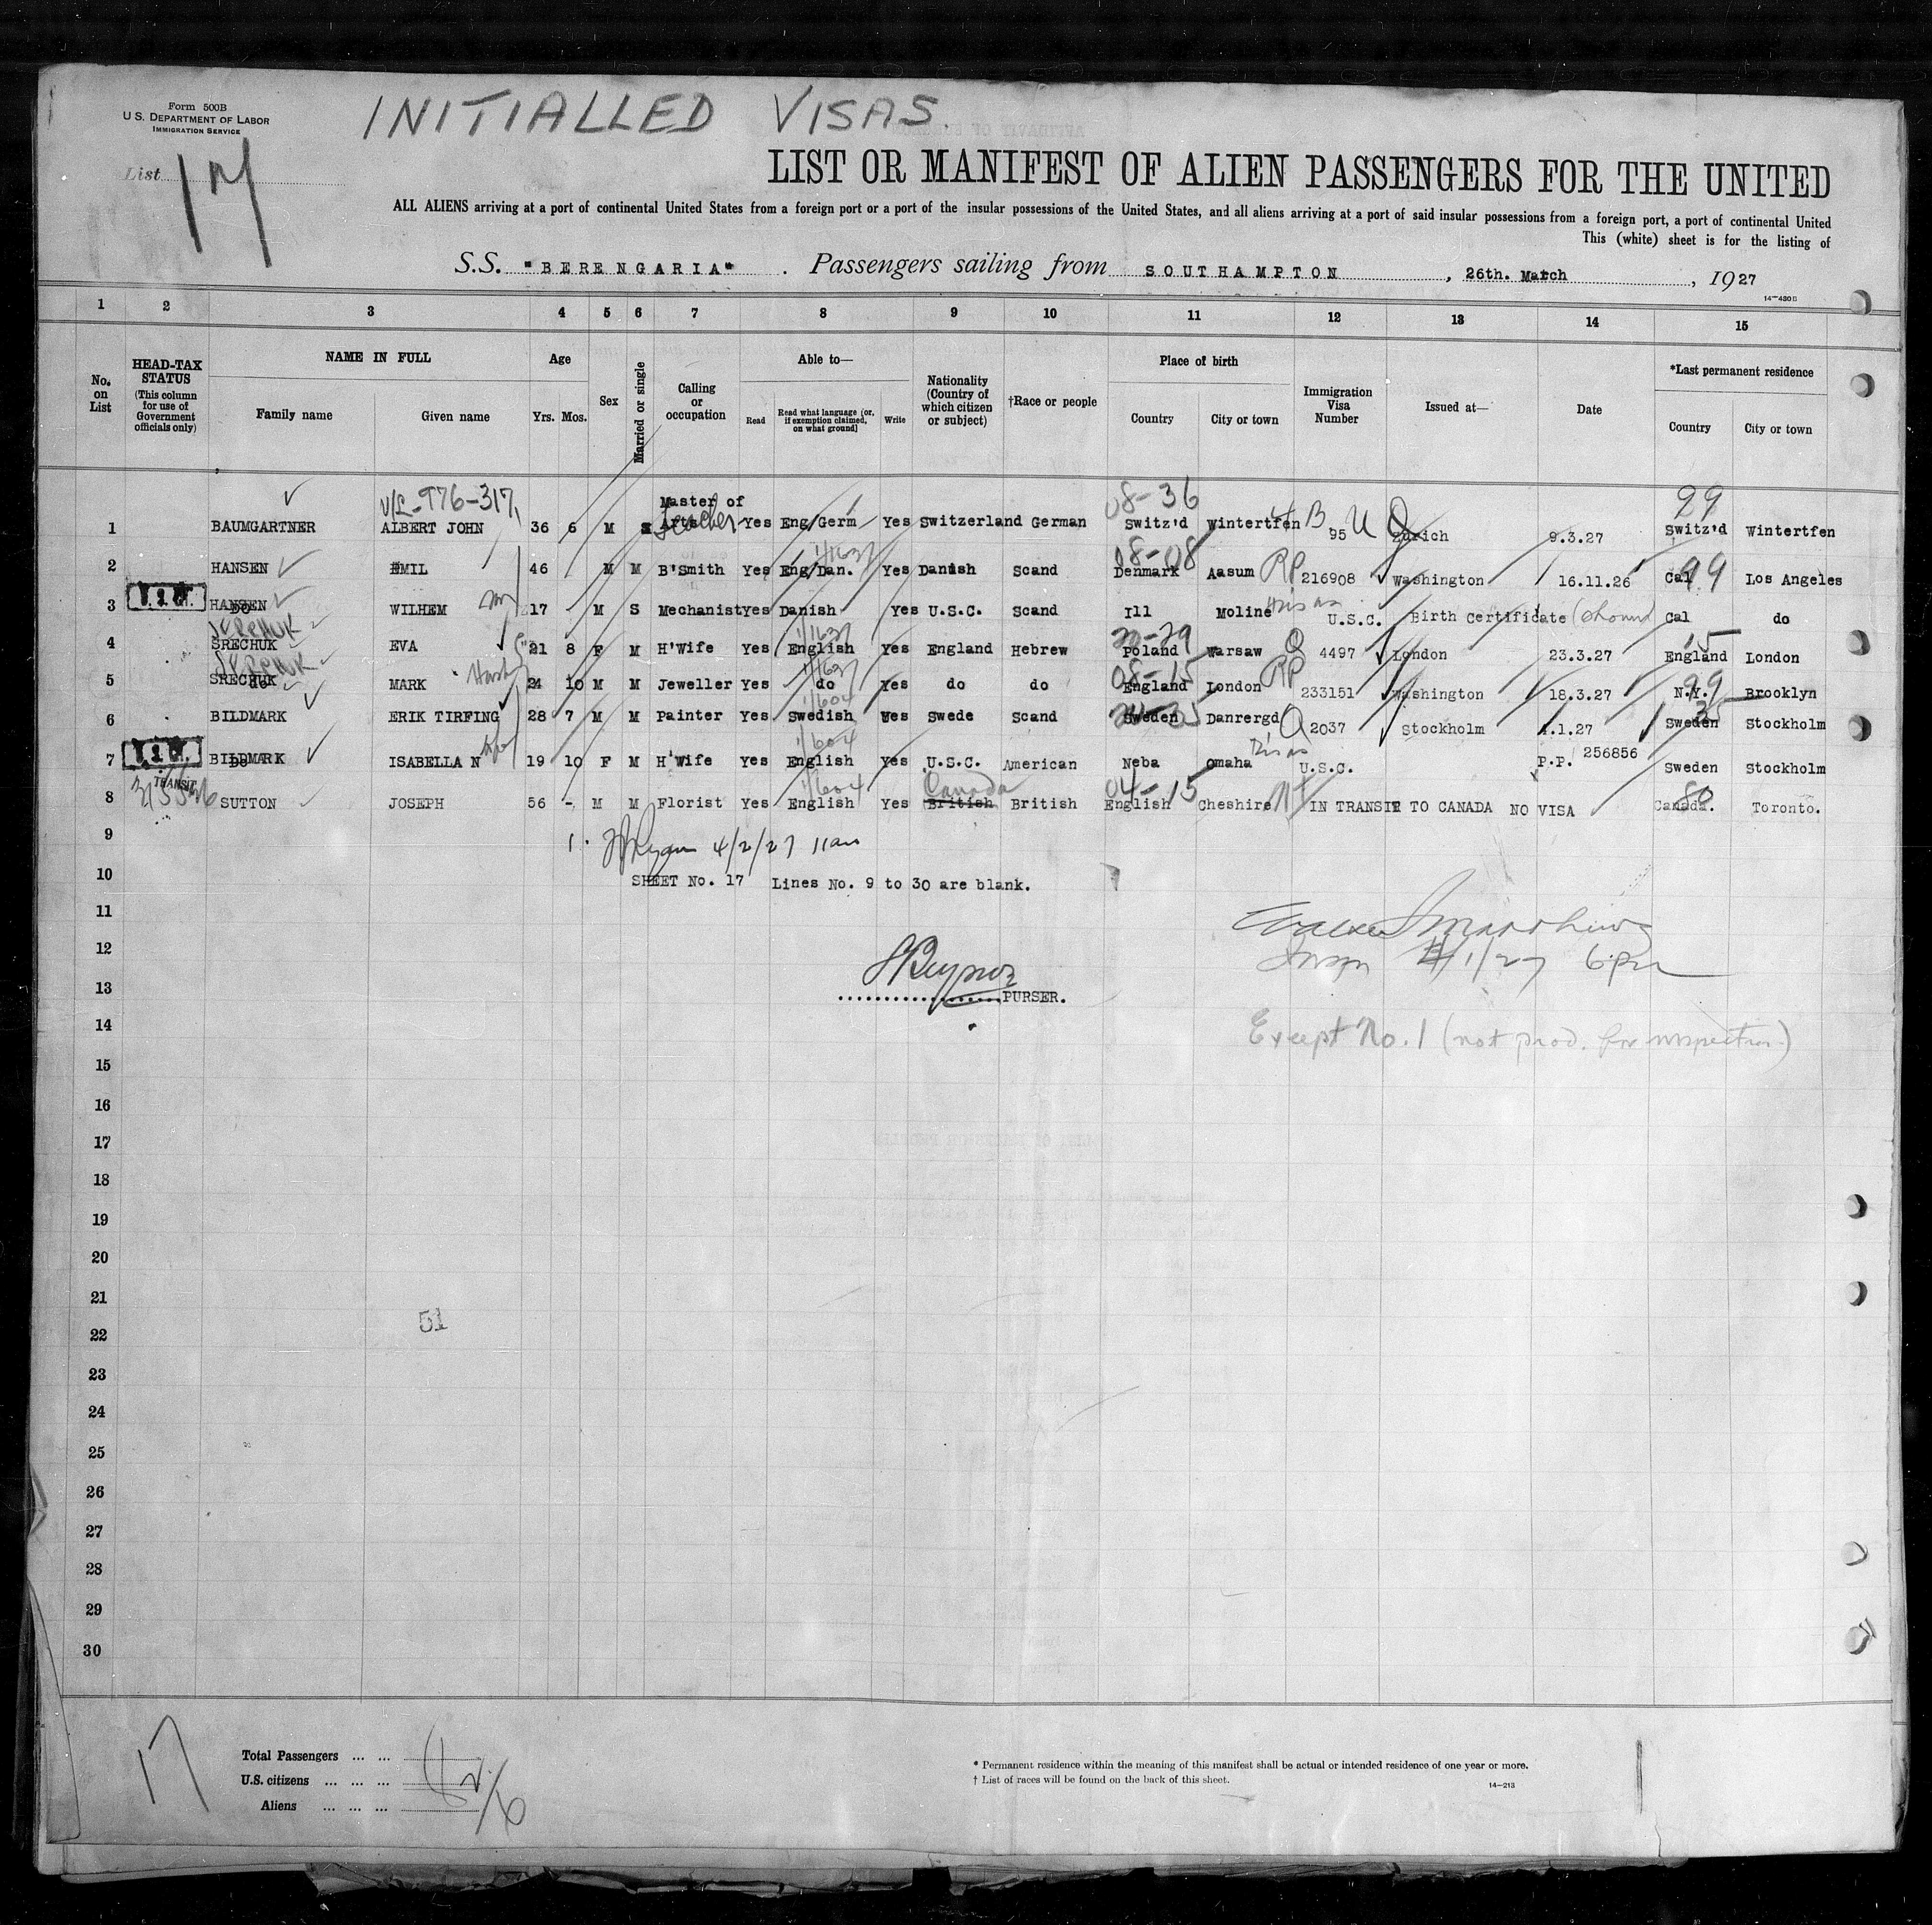 Form 500B
U.S. DEPARTMENT OF LABOR
IMMIGRATION SERVICE
INITIALLED VISAS
List 17
LIST OR MANIFEST OF ALIEN PASSENGERS FOR THE UNITED
ALL ALIENS arriving at a port of continental United States from a foreign port or a port of the insular possessions of the United States, and all aliens arriving at a port of said insular possessions from a foreign port, a port of continental United
This (white) sheet is for the listing of
S.S. "BERENGARIA" . Passengers sailing from SOUTHAMPTON , 26th. March , 1927
14—430B
1 2 3 4 5 6 7 8 9 10 11 12 13 14 15
No. on List
HEAD-TAX STATUS (This column for use of Government officials only)
NAME IN FULL
Family name Given name
Age
Yrs. Mos.
Sex
Married or single
Calling or occupation
Able to—
Read
Read what language [or, if exemption claimed, on what ground]
Write
Nationality (Country of which citizen or subject)
†Race or people
Place of birth
Country City or town
Immigration Visa Number
Issued at—
Date
*Last permanent residence
Country City or town
V/L 976-317 Master of 08-36 99
1 BAUMGARTNER ALBERT JOHN 36 6 M S Arts Teacher Yes Eng/Germ Yes Switzerland German Switz'd Wintertfen B 95 U Q Zurich 9.3.27 Switz'd Wintertfen
1/1637 08-08 99
2 HANSEN EMIL 46 M M B'Smith Yes Eng/Dan. Yes Danish Scand Denmark Aasum RP 216908 Washington 16.11.26 Cal Los Angeles
3 HANSEN DO WILHEM 17 M S Mechanist Yes Danish Yes U.S.C. Scand Ill Moline U.S.C. Birth Certificate (shown Cal do
1/1637 15
4 SRECHUK EVA 21 8 F M H'Wife Yes English Yes England Hebrew Poland Warsaw Q 4497 London 23.3.27 England London
1/1637 08-15 99
5 SRECHUK do MARK 24 10 M M Jeweller Yes do Yes do do England London RP 233151 Washington 18.3.27 N.Y. Brooklyn
1/604 35
6 BILDMARK ERIK TIRFING 28 7 M M Painter Yes Swedish Yes Swede Scand Sweden Danrergd Q 2037 Stockholm 4.1.27 Sweden Stockholm
1/604
7 BILDMARK DO ISABELLA N 19 10 F M H'Wife Yes English Yes U.S.C. American Neba Omaha U.S.C. P.P. 256856 Sweden Stockholm
TRANSIT 1/604 Canada 04-15 80
8 SUTTON JOSEPH 56 - M M Florist Yes English Yes British British English Cheshire IN TRANSIT TO CANADA NO VISA Canada. Toronto.
9
4/2/27 11am
10
SHEET No. 17 Lines No. 9 to 30 are blank.
11
12
6 PM
13
PURSER.
14
Except No. 1 (not prod. for inspection)
15
16
17
18
19
20
21
51
22
23
24
25
26
27
28
29
30
17
Total Passengers ... ...
U.S. citizens ... ... ...
Aliens ... ... ...
2/6
* Permanent residence within the meaning of this manifest shall be actual or intended residence of one year or more.
† List of races will be found on the back of this sheet.
14—213